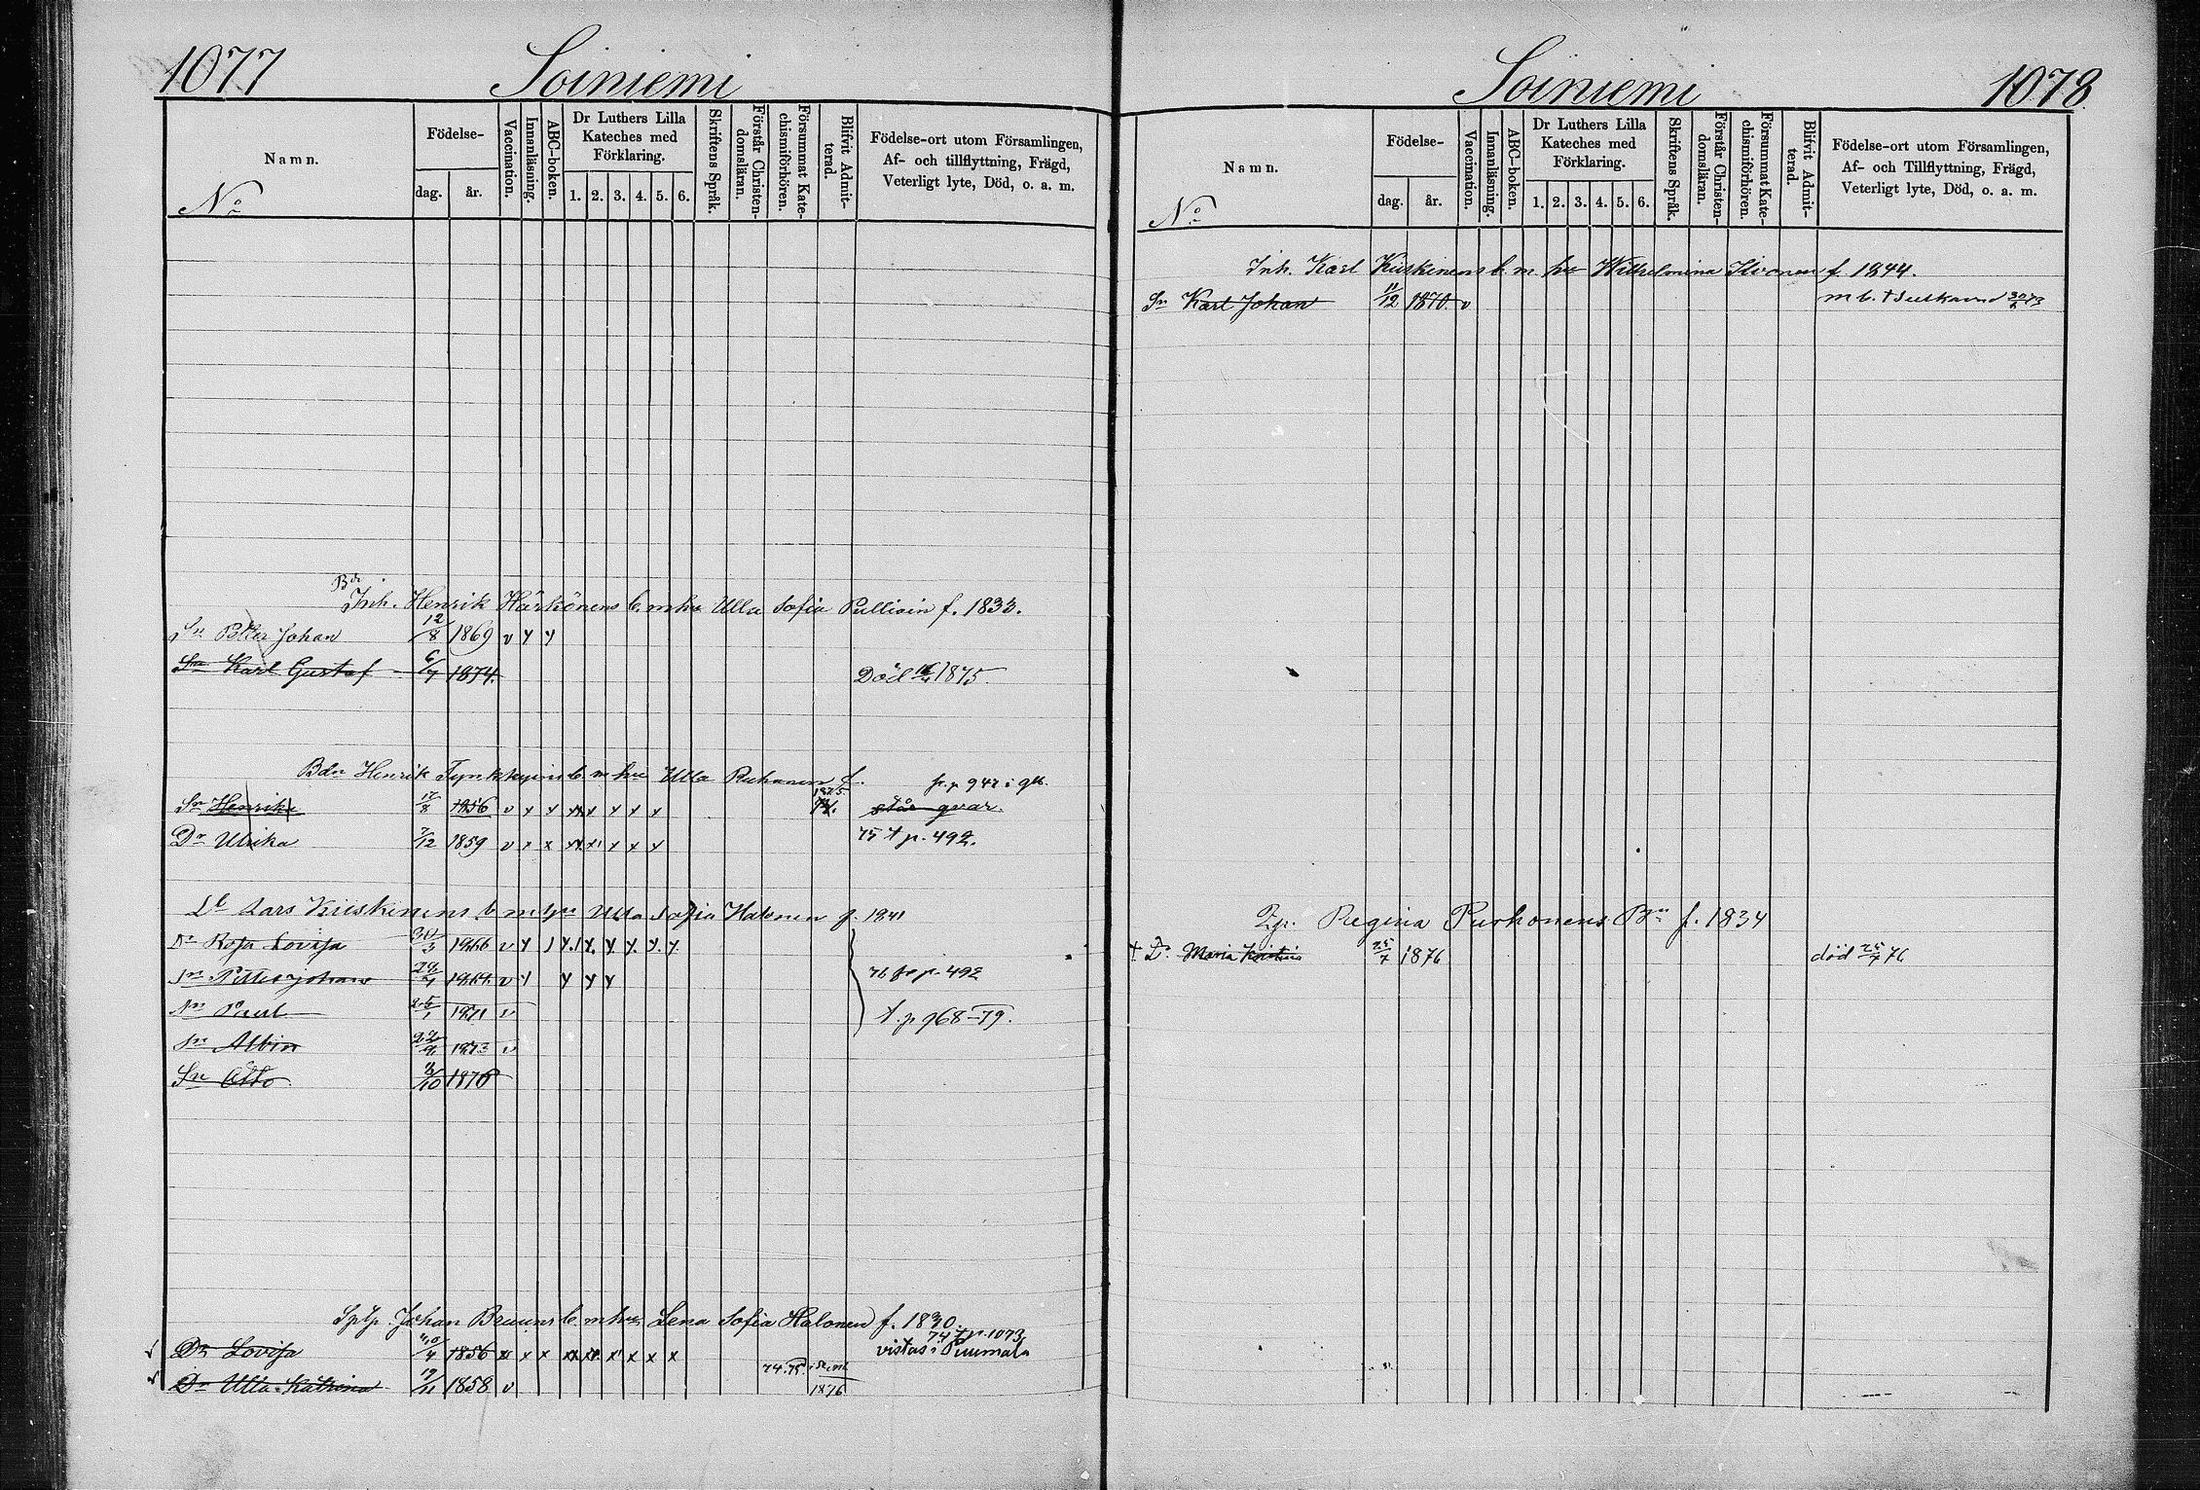 1077 Soiniemi
Namn.
No
Födelse-
dag. år.
Vaccination.
Innanläsning.
ABC-boken.
Dr Luthers Lilla
Kateches med
Förklaring.
1. 2. 3. 4. 5. 6.
Skriftens Språk.
Förstår Christen-
domsläran.
Försummat Kate-
chismiförhören.
Blifvit Admit-
terad.
Födelse-ort utom Församlingen,
Af- och tillflyttning, Frägd,
Veterligt lyte, Död, o. a. m.
Bdr
Inh. Henrik Härkönens b. m hu Ulla Sofia Pullisin f. 1833.
Sn Petter Johan 12/8 1869 v y y
Sn Karl Gustaf 6/7 1874. Död 1875.
Bdn Henrik b. m hu Ulla f. p. 942 i gk.
Sn Henrik 17/8 1856 v y y x x y y y 1875 står qvar.
Dr Ulrika 7/12 1859 v x x x x x x y 75 t p. 492.
Lars Kiiskinens b m hu Ulla Sofia Halonen f. 1841
Dr Rosa Lovisa 1866 v y
Sn Petter Johan 1869 v y y y y 76 p. 492
Sn Paul 1871 v t. p 968 -79.
Sn Albin 1873 v
Sn Otto 1876
Johan Bruuns b. m hu Lena Sofia Halonen f. 1830.
74 t p. 1073
Dr Lovisa 1856 x x x x x x x x x vistas i Puumala
Dr Ulla Katrina 1858 v 74. 75. 1876
Soiniemi 1078
Namn.
No
Födelse-
dag. år.
Vaccination.
Innanläsning.
ABC-boken.
Dr Luthers Lilla
Kateches med
Förklaring.
1. 2. 3. 4. 5. 6.
Skriftens Språk.
Förstår Christen-
domsläran.
Försummat Kate-
chismiförhören.
Blifvit Admit-
terad.
Födelse-ort utom Församlingen,
Af- och Tillflyttning, Frägd,
Veterligt lyte, Död, o. a. m.
Inh. Karl Kiiskinens b. m. hu Wilhelmina Ilvonen f. 1844.
Sn Karl Johan 11/12 1870. v m b. t Sulkava 73
Regina Purhonens Bn f. 1834
† Dr Maria Kristina 25/7 1876 död 25/7 76